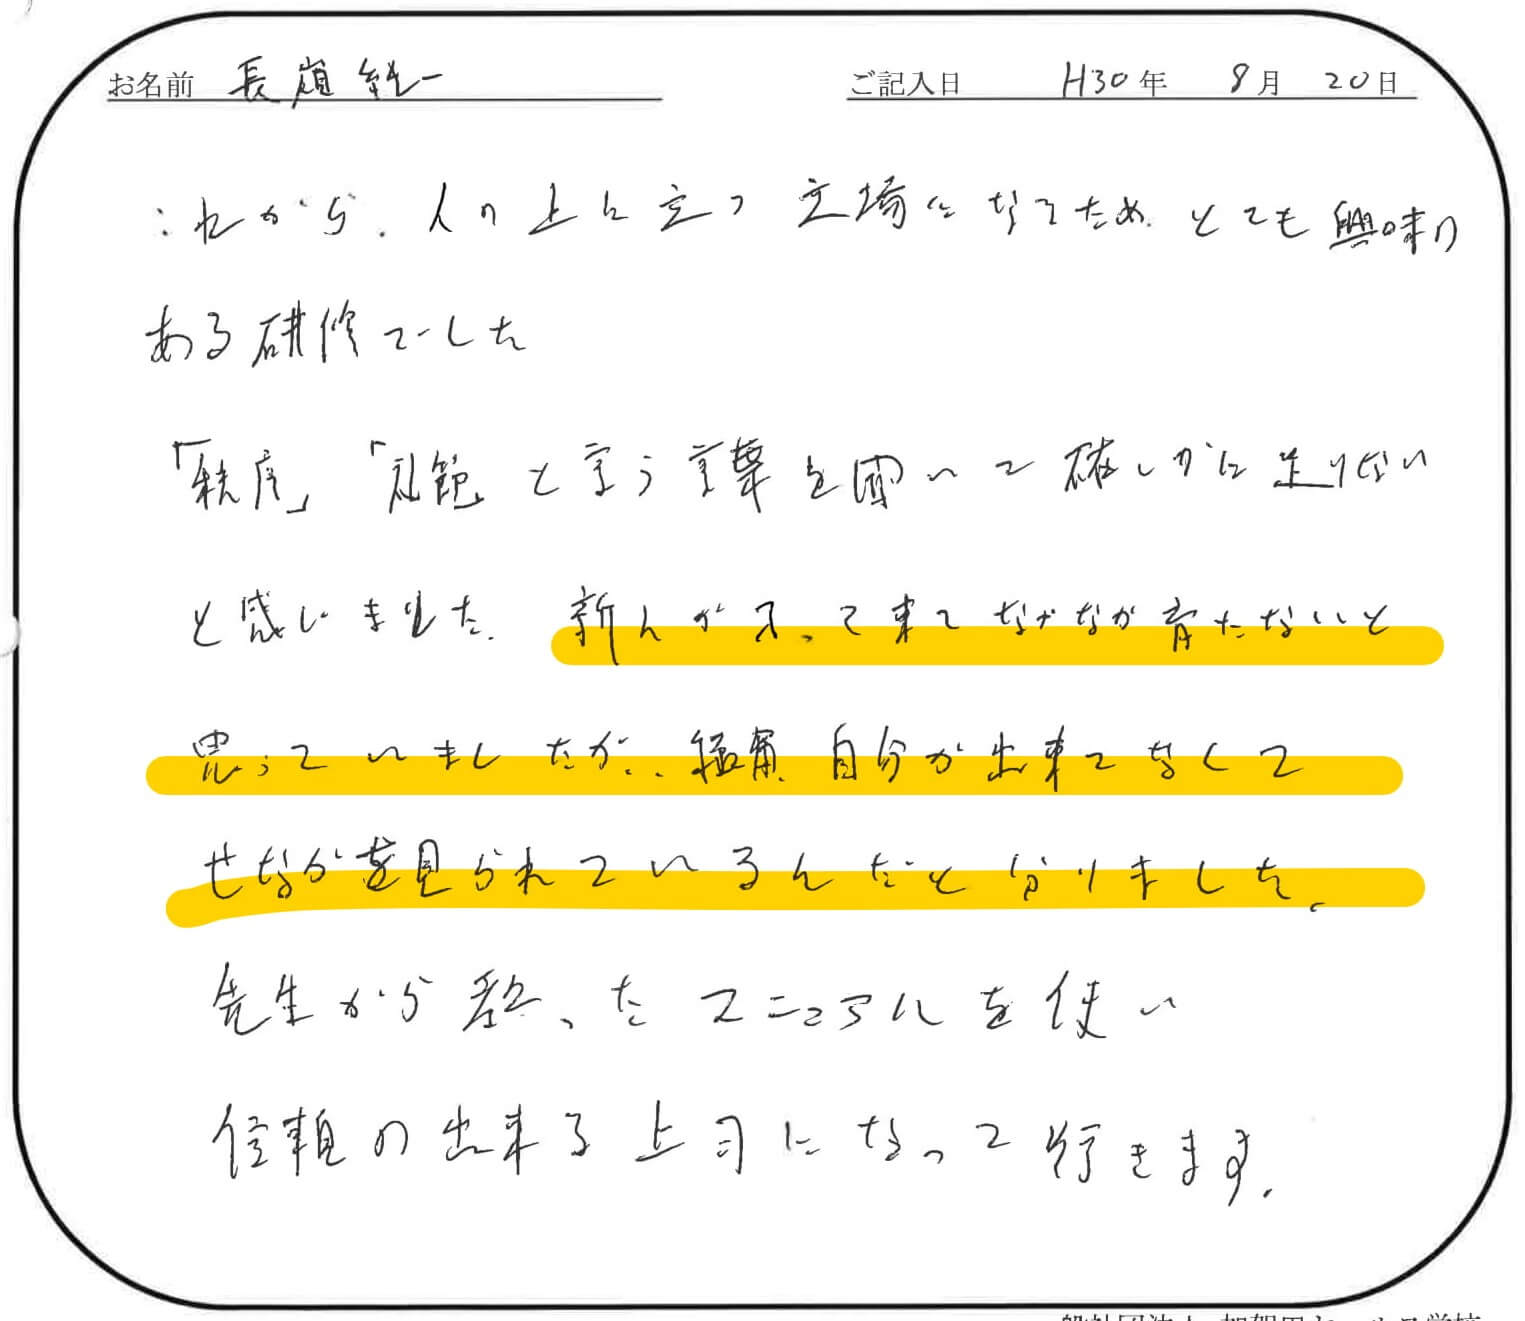 お名前 長嶺 純一 ご記入日 H30年 8月 20日
これから、人の上に立つ 立場に なるため、とても 興味の
ある 研修でした
「秩序」「礼節」と言う 言葉を聞いて 確しかに 足りない
と感じました。新人が入って来て なかなか育たないと
思っていましたが、、結局、自分が出来てなくて
せなかを見られているんだと分りました。
先生から教わった マニュアルを使い
信頼の出来る上司になって行きます。